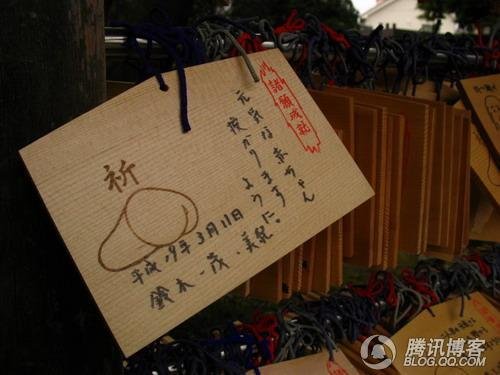 諸願成就
元気な赤ちゃん
授かりますように。
祈
平成19年3月11日
鈴木 茂・美紀
腾讯博客
BLOG.QQ.COM